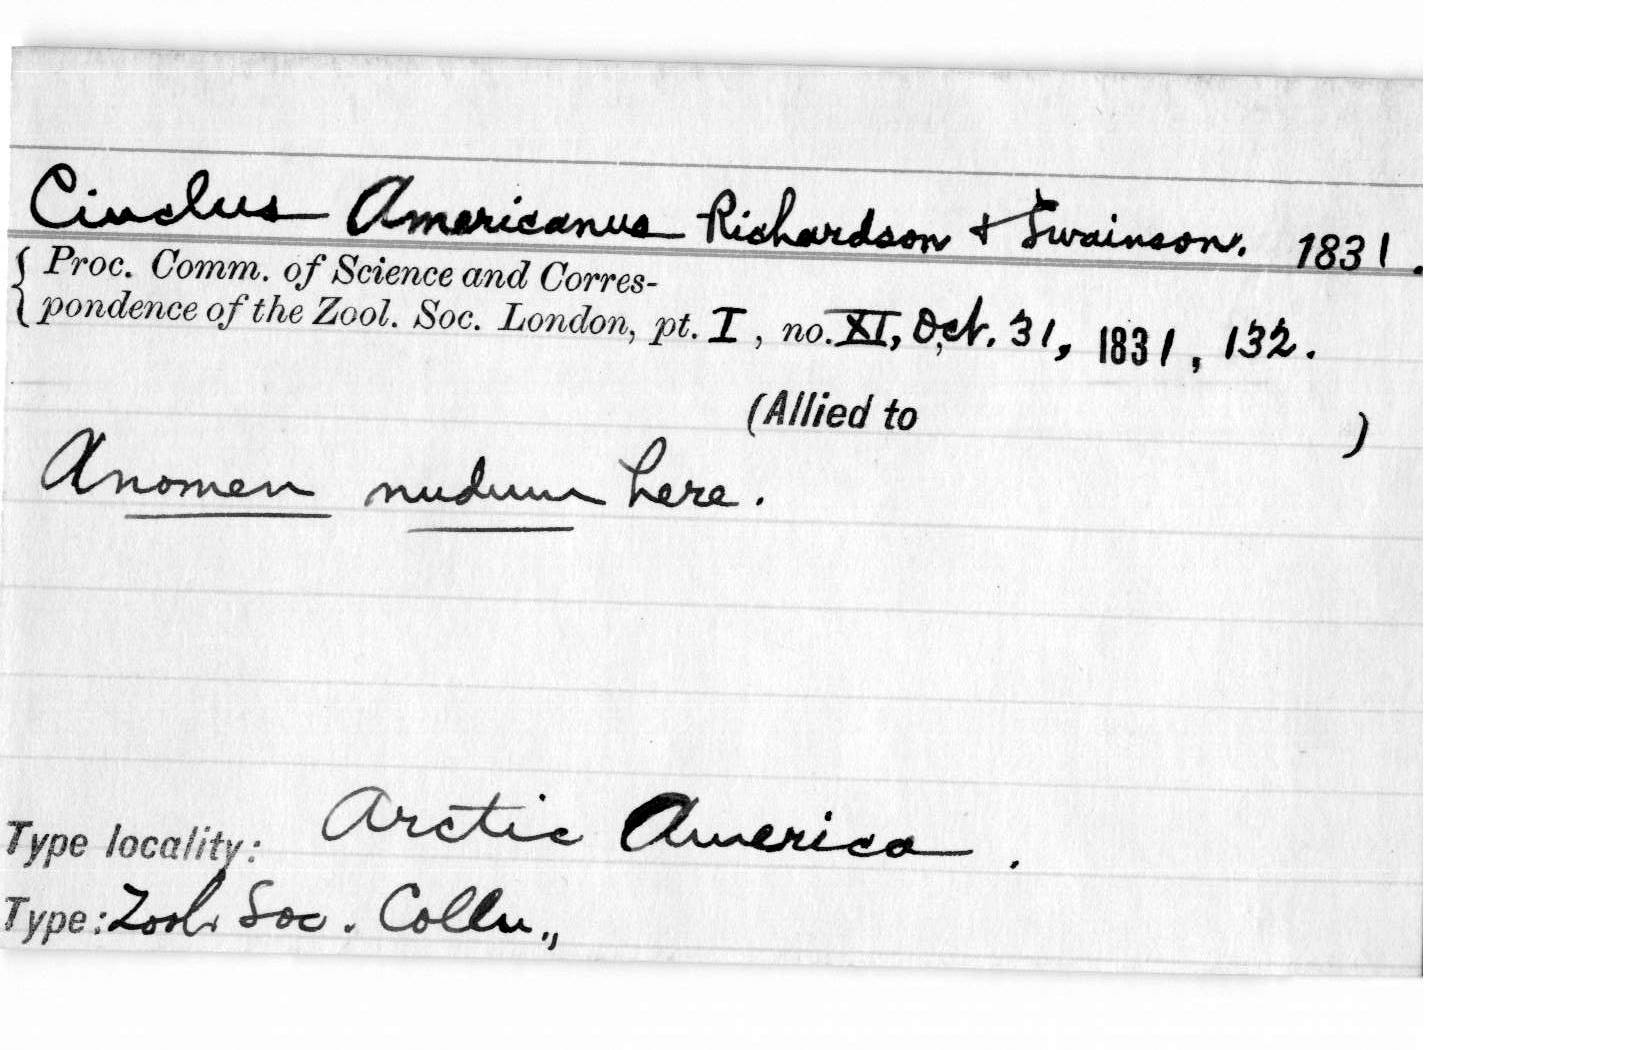 Cinclus Americanus Richardson & Swainson. 1831.
Proc. Comm. of Science and Corres-
pondence of the Zool. Soc. London, pt. I, no. XI, Oct. 31, 1831, 132.
(Allied to )
A nomen nudum here.
Type locality: Arctic America.
Type: Zool. Soc. Colln.,